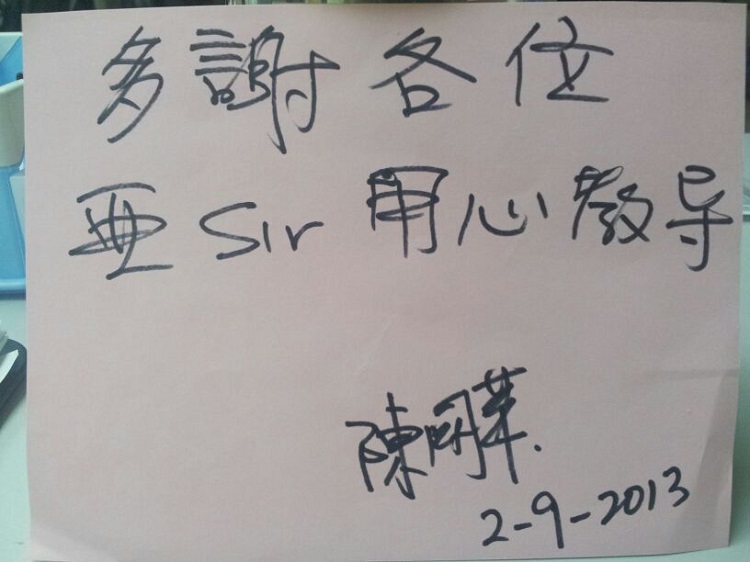 多謝各位
亞Sir 用心教导
陳
2-9-2013